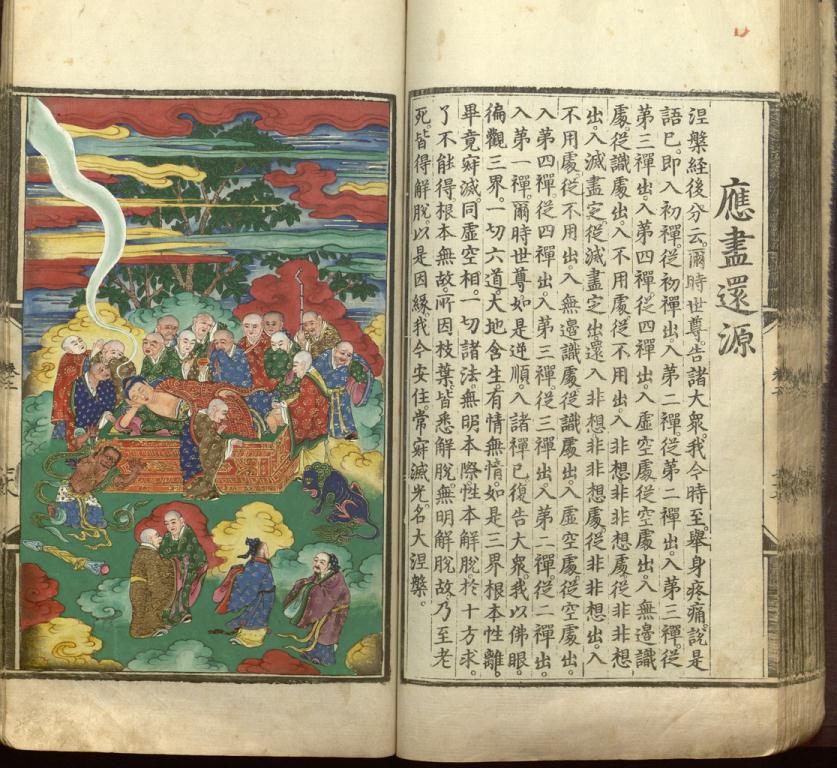 應盡還源
涅槃經後分云。爾時世尊。告諸大衆。我今時至。舉身疼痛。說是
語已。即入初禪。從初禪出。入第二禪。從第二禪出。入第三禪。從
第三禪出。入第四禪。從四禪出。入虛空處。從空處出。入無邊識
處。從識處出。入不用處。從不用出。入非想非非想處。從非非想
出。入滅盡定。從滅盡定出。還入非想非非想處。從非非想出。入
不用處。從不用出。入無邊識處。從識處出。入虛空處。從空處出。
入第四禪。從四禪出。入第三禪。從三禪出。入第二禪。從二禪出。
入第一禪。爾時世尊。如是逆順。入諸禪已。復告大衆。我以佛眼。
徧觀三界。一切六道。天地含生。有情無情。如是三界。根本性離。
畢竟寂滅。同虛空相。一切諸法。無明本際。性本解脫。於十方求。
了不能得。根本無故。所因枝葉。皆悉解脫。無明解脫故。乃至老
死。皆得解脫。以是因緣。我今安住。常寂滅光。名大涅槃。